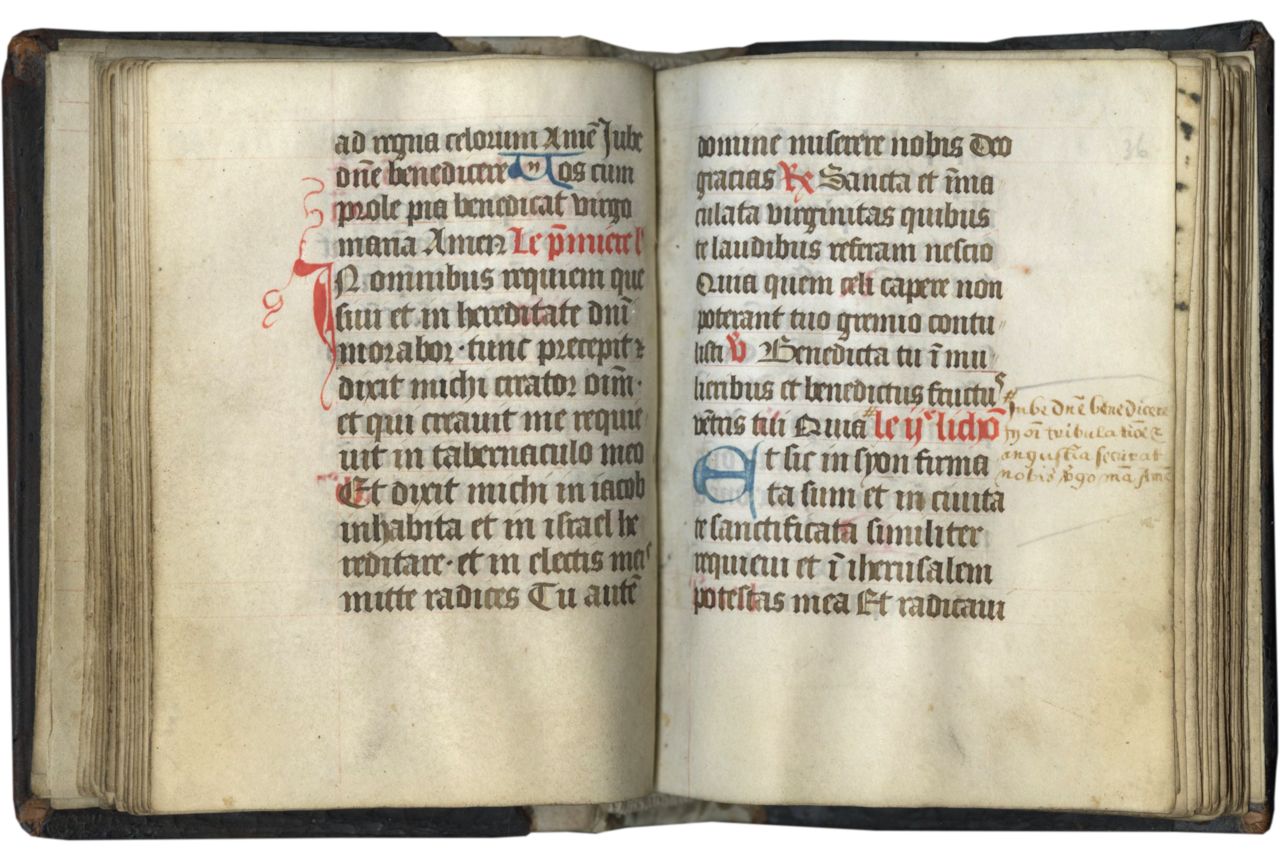 ad regna celorum Amē Jube
dn̄e benedicere Nos cum
prole pia benedicat virgo
maria Amen Le p̄miere l'
IN omnibus requiem que
siui et in hereditate dnī
morabor · tunc precepit ⁊
dixit michi creator oīm ·
et qui creauit me requie
uit in tabernaculo meo
Et dixit michi in iacob
inhabita et in israel he
reditare · et in electis meis
mitte radices Tu autē
domine miserere nobis Deo
gracias ℞ Sancta et īma
culata virginitas quibus
te laudibus referam nescio
Quia quem celi capere non
poterant tuo gremio contu〃
listi ℣ Benedicta tu ī mu〃
lieribus et benedictus fructus
vētris tui Quia # le ijᵉ lichō
Et sic in syon firma
ta sum et in ciuita
te sanctificata similiter
requieui et ī iherusalem
potestas mea Et radicaui
36
# Jube dn̄e benedicere
In oī tribulatiōe ⁊
angustia securrat
nobis v̄go mā Amē